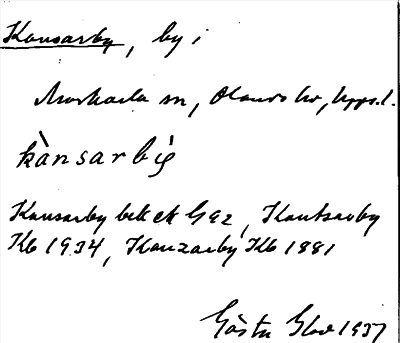 Kansarby, by i
Morkarla sn, Olands hd, Upps. l.
kànsarbẙ
Kansarby Kantsarby
Kb 1934, Kanzarby Kb 1881
Gösta 1937